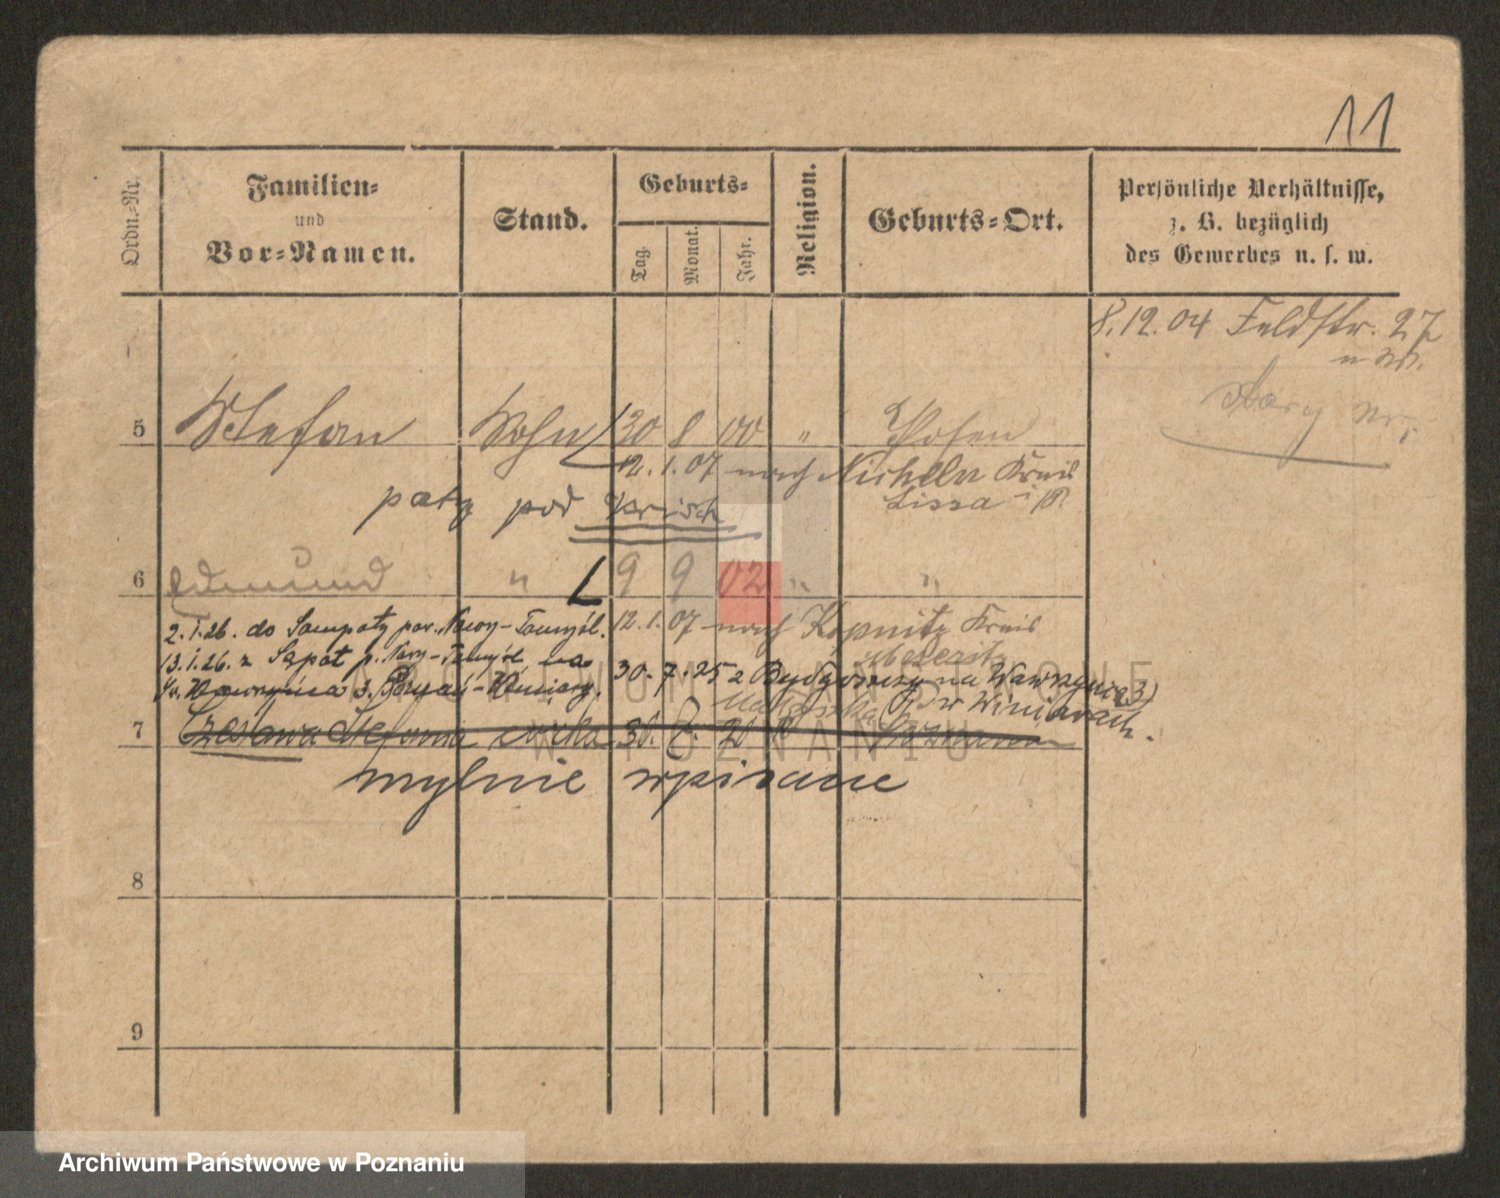 11
Ordn.-Nr.
Familien-
und
Vor-Namen.
Stand.
Geburts-
Tag.
Monat.
Jahr.
Religion.
Geburts-Ort.
Persönliche Verhältnisse,
z. B. bezüglich
des Gewerbes u. s. w.
8.12.04 Feldstr. 27
5 Stefan Sohn 30 8 00 " Posen
12.1.07 nach Nicheln Kreis
Lissa i/P.
patrz pod
6 Edmund " 9 9 02 " "
12.1.07 nach Kopnitz Kreis
2.1.26. do Sempoty pow. Nowy-Tomyśl.
13.1.26. z Sąpol p. Nowy-Tomyśl na
30.7.25 z Bydgoszczy na Wawrzyńca 3)
w Winiarach.
św. Wawrzyńca 3. Poznań-Winiary.
7 Czesława Stefania córka 30. 8. 20 Poznania
mylnie wpisane
8
9
ARCHIWUM PAŃSTWOWE
W POZNANIU
Archiwum Państwowe w Poznaniu